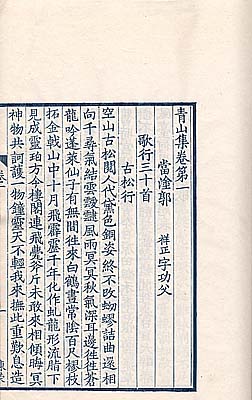 青山集卷第一
當塗郭 祥正字功父
歌行三十首
古松行
空山古松閱人代黛色銅姿終不改蚴蟉詰曲還相
向千尋氣結雲靉靆風雨冥冥秋氣深耳邊往往蒼
龍吟蓬萊仙子有無間往來白鶴晝常陰百尺樛枝
拓金戟山中十月飛霹靂千年化作虬龍形流脂下
見成靈珀方今樓閣連飛甍斧斤未敢來相傾晦冥
神物共訶護一物鐘靈天不輕我來撫此重歎息造
卷一